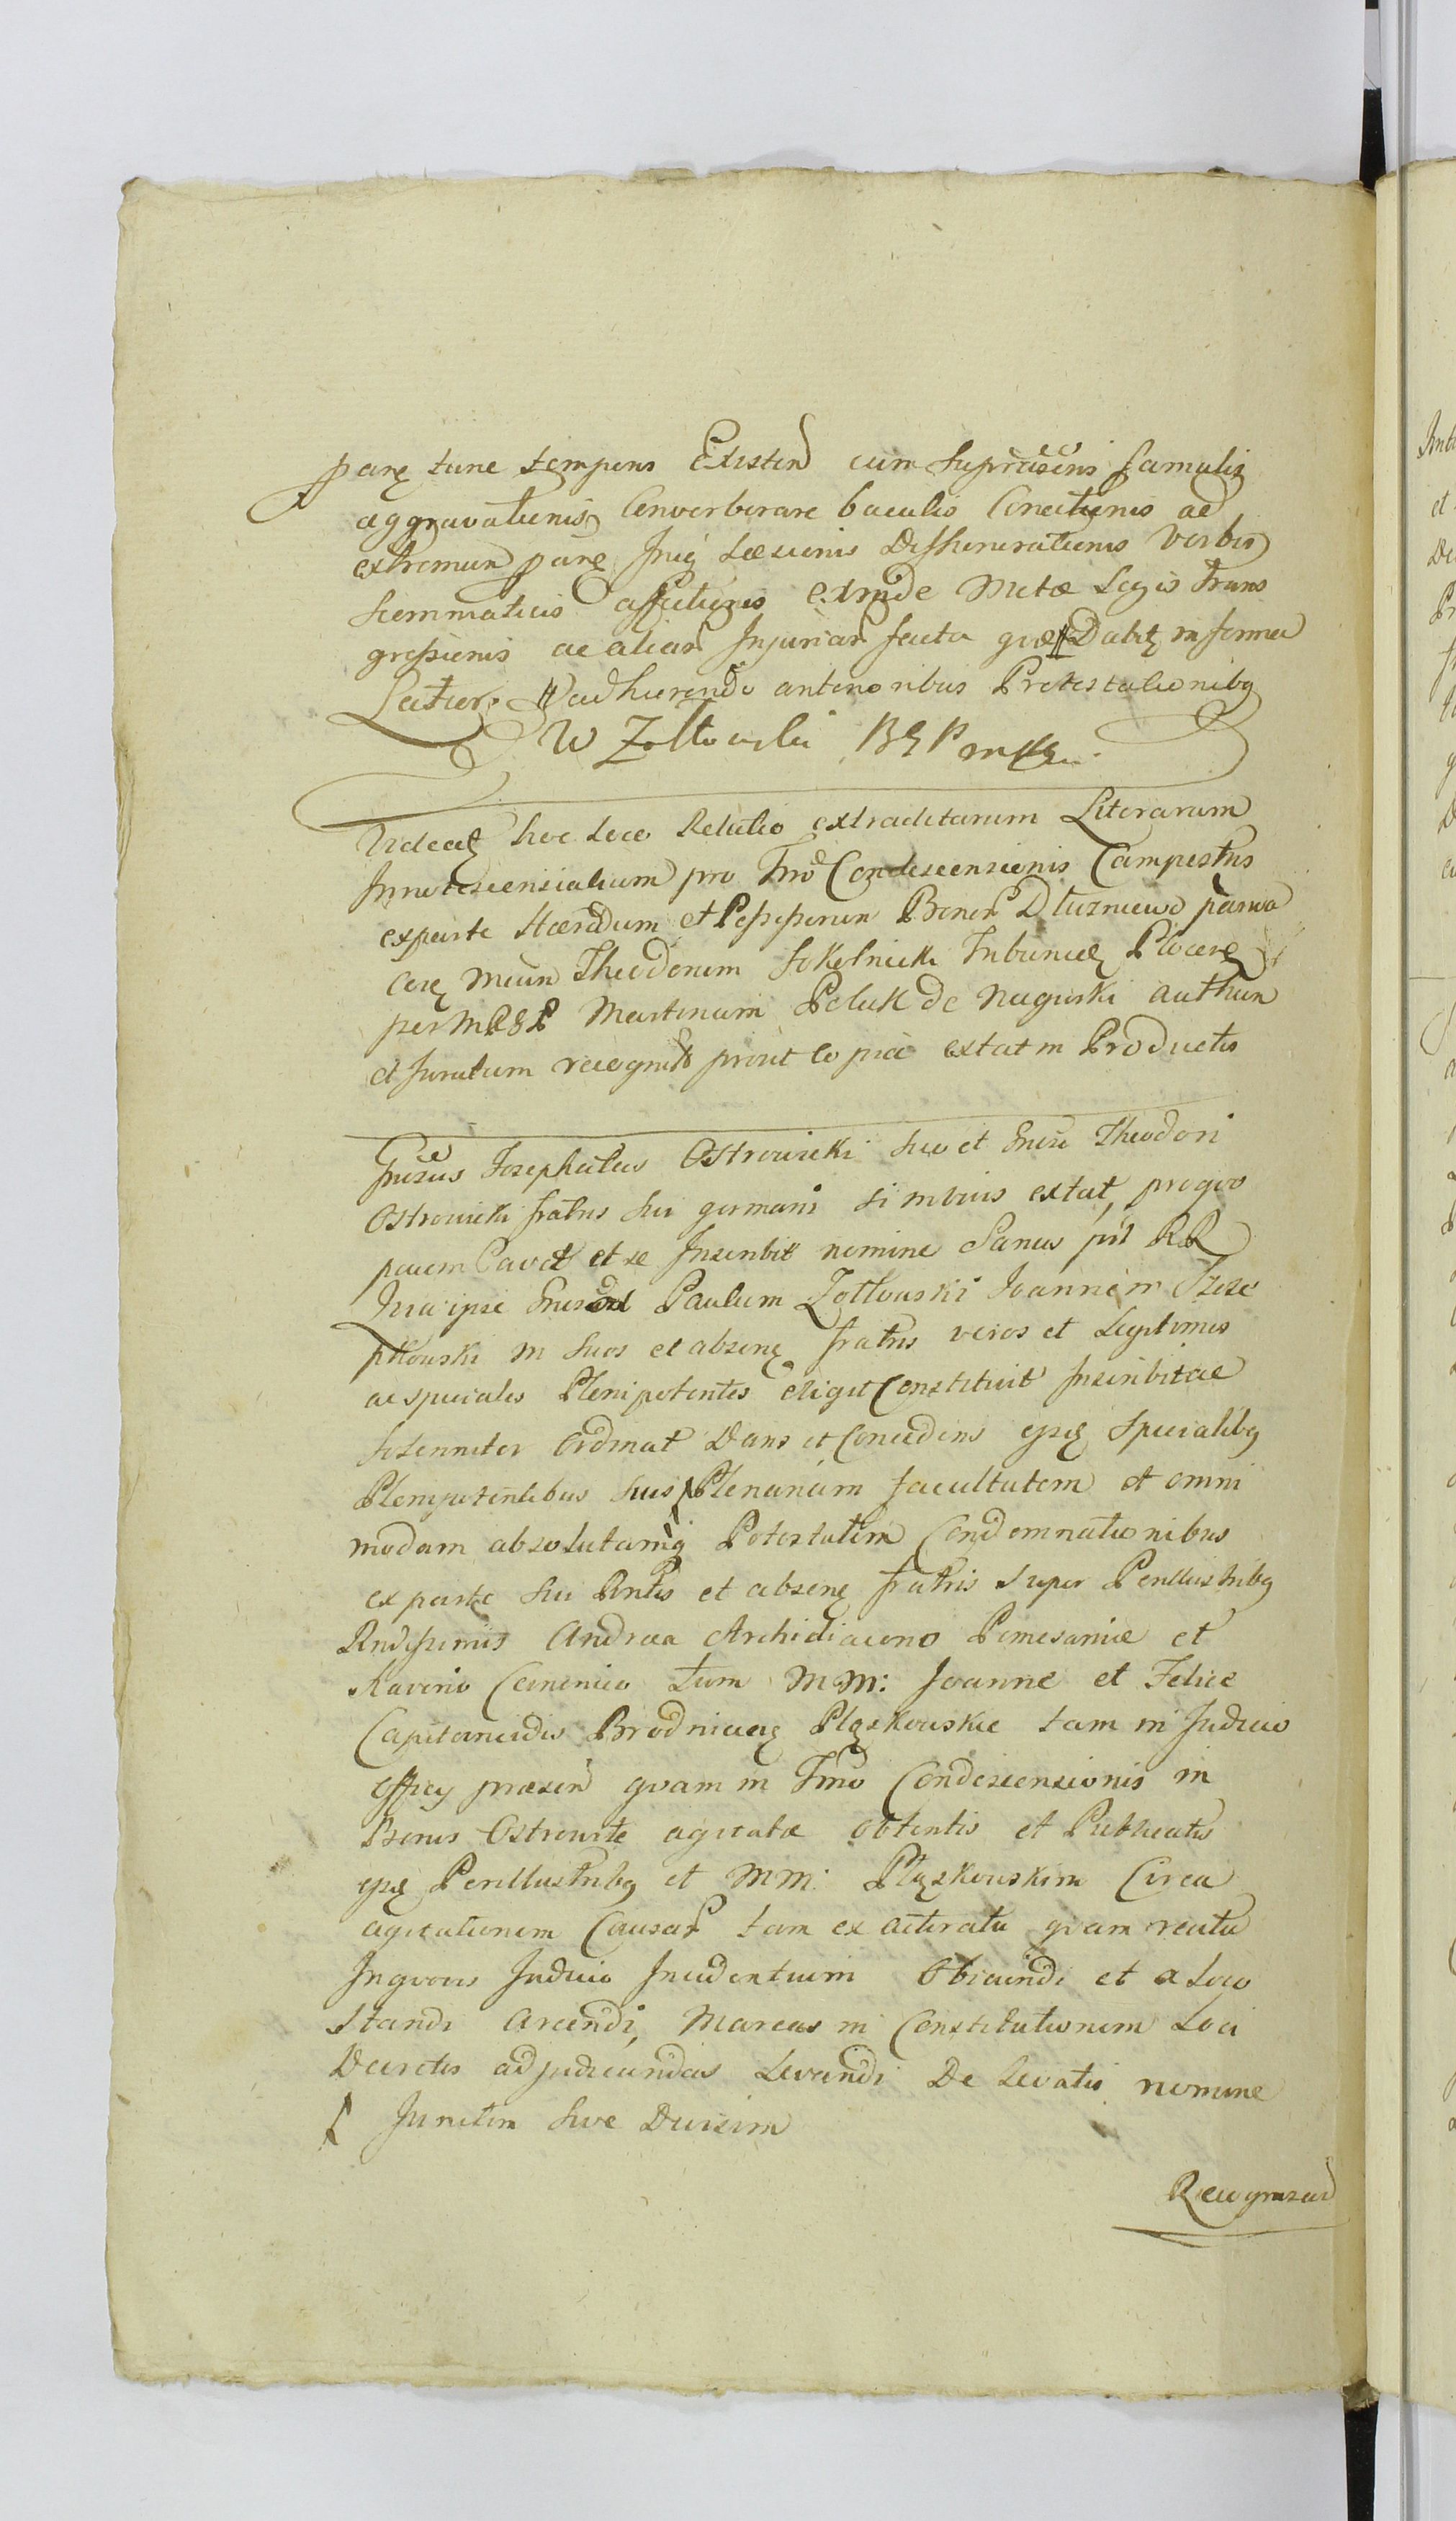 parę tunc temporis Existen cum supra famulis
aggravationis Converberare baculis Concitionis ad
extremum parę Laesionis Dishonorationis Verbis
stemmaticis affectionis exinde Metae Legis Trans
gressionis ac aliar Injuriar facta Dabitę in forma
Latior. adhaerendo anterioribus Protestationibq
W Zołtowski BGP mpa
Videatę hoc loco Relatio extraditarum Literarum
Innotescensialium pro Tmo Condescensionis Campestris
ex parte Haeredum et Possessorum Bonor Dłuzniewo parva
Theodorum Sokolnicki Tribunidę Płocenę
per MRGP Martinum Peluk de Naguszki authen
et Juratum recognit prout copia extat in Productis
Gnesus Josephatus Ostrowicki suo et Gnesi Theodori
Ostrowicki fratris sui germani si in vivis extat, pro quo
pacem Cavet et se Inscribit nomine Sanus RR
Jura ipse Paulum Zołtowski Joannem Szcze
pkowski in suos et absenę fratris veros et Legitimos
ac speciales Plenipotentes eligit Constituit Inscribit ac
Solenniter Ordinat Dans et Concedens ipsę Specialibq
Plenipotentibus suis Plenariam facultatem et omni
modam absolutamq Potestatem Condemnationibus
ex parte sui Pntis et absenę fratris super Perillustribq
Rndissimis Andrea Archidiacono Pomesaniae et
Canonico tum MM: Joanne et Felice
Capitaneidis Brodnicenę Pląskowskie tam in Judicio
officy praesen quam in Tmo Condescensionis in
Bonis Ostrowite agitatae obtentis et Publicatis
ipsę Perillustribq et MM: Pląskowskim Circa
agitationem Causar tam ex actoratu quam reatu
In quovis Judicio Incidentium Obiiciendi et a Loco
Standi arcendi, Marcas in Constitutionem Loci
Decretis adjudicandas Levandi De Levatis nomine
Junctim sive Divisim
Recognoscend